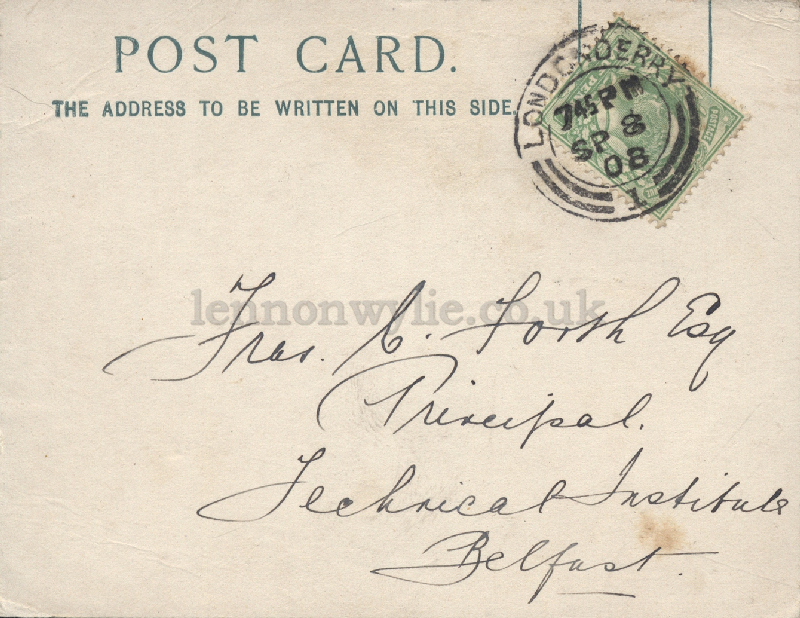 POST CARD.
THE ADDRESS TO BE WRITTEN ON THIS SIDE.
LONDONDERRY
7 45 PM
SP 8
08
1
lennonwylie.co.uk
Fras. C. Forth Esq
Principal.
Technical Institute
Belfast.